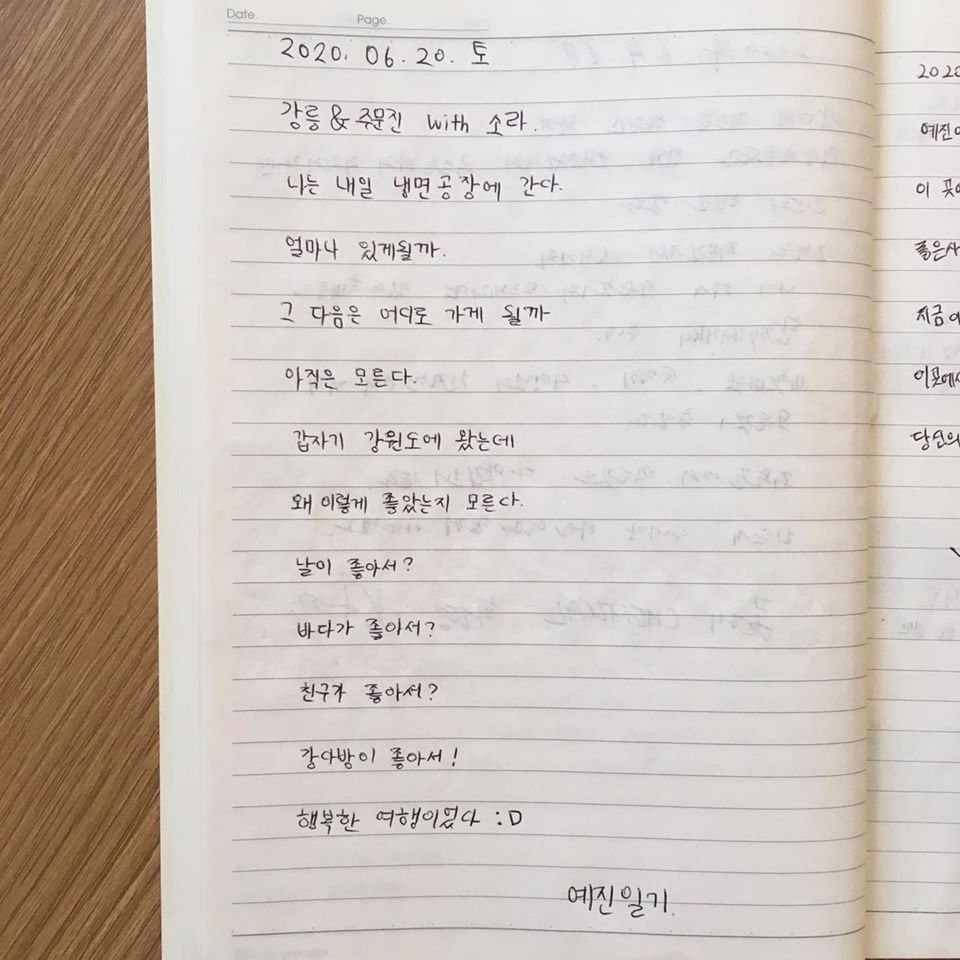 Date.
Page.
2020. 06. 20. 토
강릉 & 주문진 with 소라.
나는 내일 냉면공장에 간다.
얼마나 있게될까.
그 다음은 어디로 가게 될까
아직은 모른다.
갑자기 강원도에 왔는데
왜 이렇게 좋았는지 모른다.
날이 좋아서?
바다가 좋아서?
친구가 좋아서?
강다방이 좋아서!
행복한 여행이었다 :D
예진일기.
이 곳에
좋은사
이곳에서
당신의